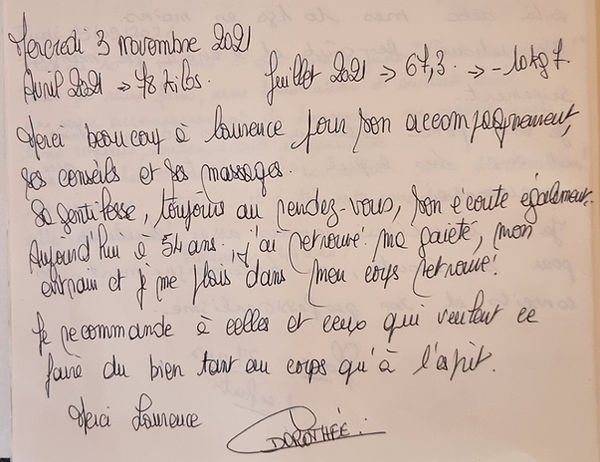 Mercredi 3 novembre 2021
Avril 2021 → 78 kilos. Juillet 2021 → 67,3. → - 10kg7.
Merci beaucoup à Laurence pour son accompagnement,
ses conseils et ses massages.
Sa gentillesse, toujours au rendez-vous, son écoute également.
Aujourd'hui à 54 ans, j'ai retrouvé ma gaieté, mon
entrain et je me plais dans mon corps retrouvé.
Je recommande à celles et ceux qui veulent ce
faire du bien tant au corps qu'à l'esprit.
Merci Laurence
DOROTHÉE.